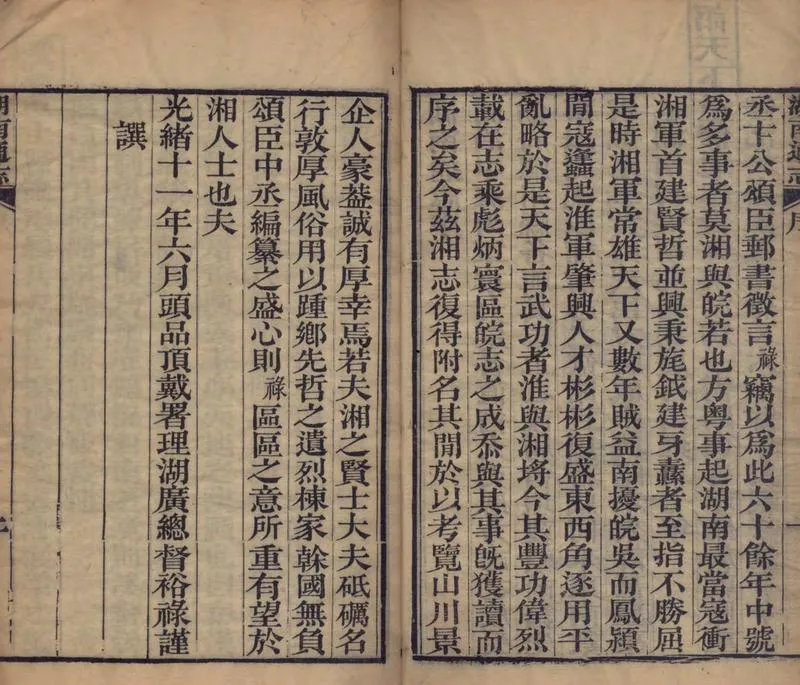 丞卞公頌臣郵書徵言祿竊以爲此六十餘年中號
爲多事者莫湘與皖若也方粵事起湖南最當寇衝
湘軍首建賢哲並興秉旄鉞建牙纛者至指不勝屈
是時湘軍常雄天下又數年賊益南擾皖吳而鳳潁
閒寇蠭起淮軍肇興人才彬彬復盛東西角逐用平
亂略於是天下言武功者淮與湘埒今其豐功偉烈
載在志乘彪炳寰區皖志之成忝與其事旣獲讀而
序之矣今茲湘志復得附名其閒於以考覽山川景
企人豪葢誠有厚幸焉若夫湘之賢士大夫砥礪名
行敦厚風俗用以踵鄉先哲之遺烈棟家榦國無負
頌臣中丞編纂之盛心則祿區區之意所重有望於
湘人士也夫
光緒十一年六月頭品頂戴署理湖廣總督裕祿謹
譔
湖南通志
序
湖南通志